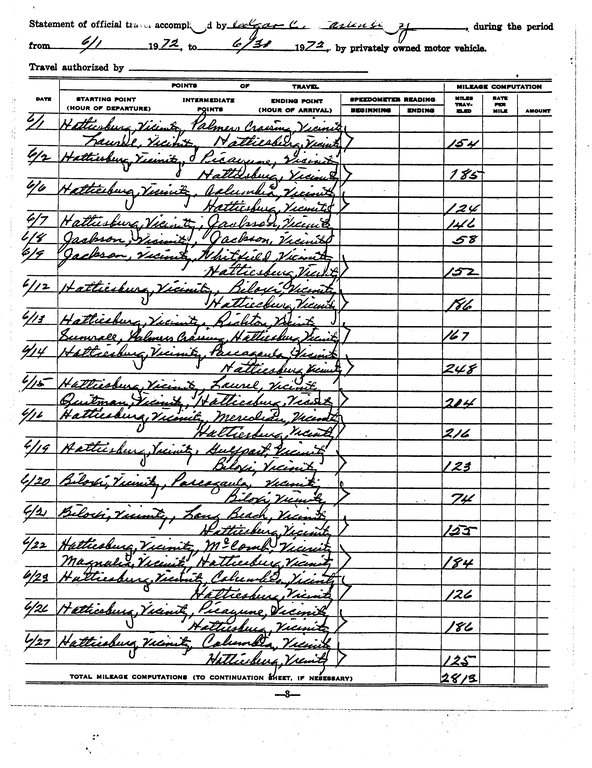 Statement of official travel accomplished by Edgar C. , during the period
from 6/1 1972, to 6/30 1972, by privately owned motor vehicle.
Travel authorized by
POINTS OF TRAVEL MILEAGE COMPUTATION
DATE STARTING POINT (HOUR OF DEPARTURE) INTERMEDIATE POINTS ENDING POINT (HOUR OF ARRIVAL) SPEEDOMETER READING BEGINNING ENDING MILES TRAV- ELED RATE PER MILE AMOUNT
6/1 Hattiesburg, Vicinity, Palmers Crossing, Vicinity
Laurel, Vicinity Hattiesburg, Vicinity 154
6/2 Hattiesburg, Vicinity, Picayune, Vicinity
Hattiesburg, Vicinity 185
6/6 Hattiesburg, Vicinity, Columbia, Vicinity
Hattiesburg, Vicinity 124
6/7 Hattiesburg, Vicinity, Jackson, Vicinity 146
6/8 Jackson, Vicinity, Jackson, Vicinity 58
6/9 Jackson, Vicinity, Whitfield, Vicinity
Hattiesburg, Vicinity 152
6/12 Hattiesburg, Vicinity, Biloxi, Vicinity
Hattiesburg, Vicinity 186
6/13 Hattiesburg, Vicinity, Richton, Vicinity
Sumrall, Palmers Crossing, Hattiesburg, Vicinity 167
6/14 Hattiesburg, Vicinity, Pascagoula, Vicinity
Hattiesburg, Vicinity 248
6/15 Hattiesburg, Vicinity, Laurel, Vicinity
Quitman, Vicinity, Hattiesburg, Vicinity 204
6/16 Hattiesburg, Vicinity, Meridian, Vicinity
Hattiesburg, Vicinity 216
6/19 Hattiesburg, Vicinity, Gulfport, Vicinity
Biloxi, Vicinity 123
6/20 Biloxi, Vicinity, Pascagoula, Vicinity
Biloxi, Vicinity 74
6/21 Biloxi, Vicinity, Long Beach, Vicinity
Hattiesburg, Vicinity 155
6/22 Hattiesburg, Vicinity, McComb, Vicinity
Magnolia, Vicinity, Hattiesburg, Vicinity 184
6/23 Hattiesburg, Vicinity, Columbia, Vicinity
Hattiesburg, Vicinity 126
6/26 Hattiesburg, Vicinity, Picayune, Vicinity
Hattiesburg, Vicinity 186
6/27 Hattiesburg, Vicinity, Columbia, Vicinity
Hattiesburg, Vicinity 125
TOTAL MILEAGE COMPUTATIONS (TO CONTINUATION SHEET, IF NECESSARY) 2813
—3—